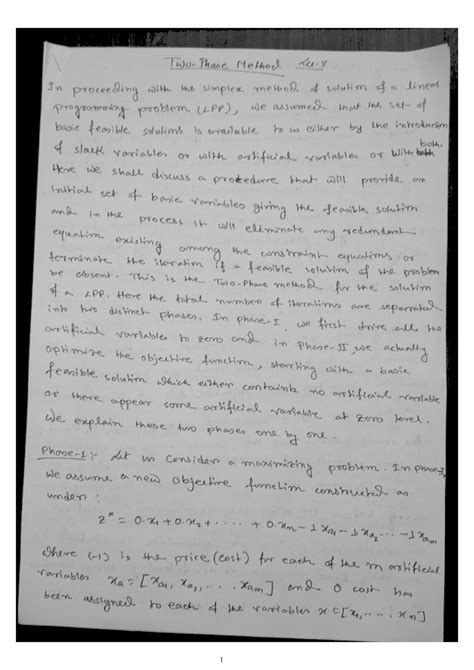 Two-Phase Method Lec-8
In proceeding with the simplex method of solution of a linear
programming problem (LPP), we assumed that the set of
basic feasible solutions is available to us either by the introduction
of slack variables or with artificial variables or with both.
Here we shall discuss a procedure that will provide an
initial set of basic variables giving the feasible solution
and in the process it will eliminate any redundant
equation existing among the constraint equations or
terminate the iteration if a feasible solution of the problem
be absent. This is the Two-Phase method for the solution
of a LPP. Here the total number of iterations are separated
into two distinct phases. In phase-I, we first drive all the
artificial variables to zero and in Phase-II we actually
optimize the objective function, starting with a basic
feasible solution which either contains no artificial variable
or there appear some artificial variable at zero level.
We explain these two phases one by one.
Phase-1:- Let us consider a maximizing problem. In phase-I,
we assume a new objective function constructed as
under:
z* = 0.x₁ + 0.x₂ + ..... + 0.xₙ - 1 xₐ₁ - 1 xₐ₂ ... - 1 xₐₘ
where (-1) is the price (cost) for each of the m artificial
variables xₐ = [xₐ₁, xₐ₂, ... xₐₘ] and 0 cost has
been assigned to each of the variables x = [x₁, ... xₙ]
1